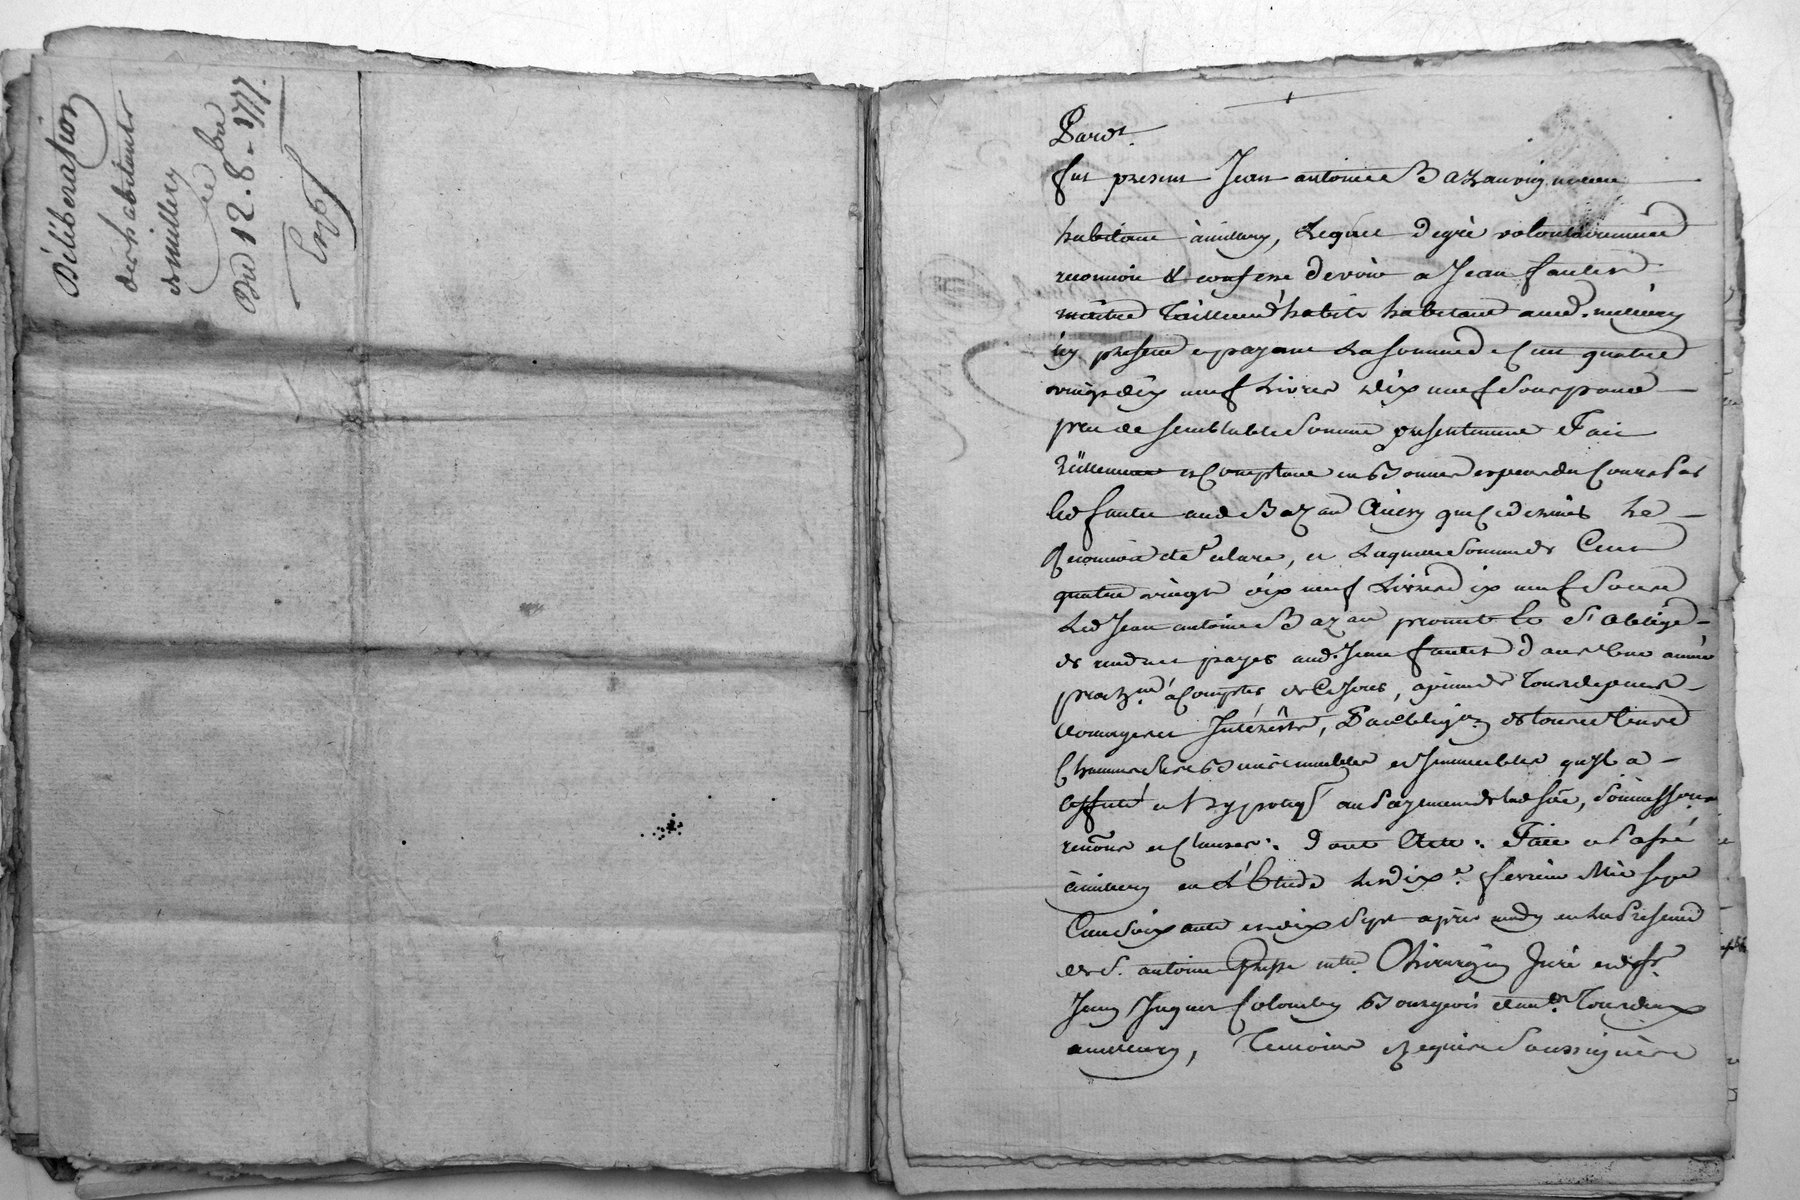 Délibération
des habitants
de millery
Du 12. 8bre 1777.
Exp
Pardt.
fut present Jean antoine Bazan vigneron
habitant à millery, Lequel de gré volontairement
reconnoit & confesse devoir a Jean fautier
maitre Tailleur d'habits habitant aud. millery
icy present et payant La somme de Cent quatre
vingt dix neuf Livres dix neuf sous pour
pret de semblable somme presentement Fait
réellement et Comptant en Bonnes especes du Cours Par
led fautier aud Bazan Ainsy que ce dernier Le
Reconnoit et declare, et Laquelle somme de Cent
quatre vingt dix neuf Livres dix neuf sous
Led Jean antoine Bazan promet et s'oblige
de rendre et payer aud. Jean fautier dans une année
prochne. à Compter de Ce Jour, a peine de Tous depens
dommages Interêsts, Par obligon. de tous et un
Chacun ses Biens meubles et Immeubles qu'il a
affecté et hypotequé au Payement de lad sōe, soumissions
renōns et Clauses: Dont Acte: Fait et Passé
à millery en L'Etude Le dixe. fevrier Mil sept
Cent soixante et dix sept après midy en La Presence
de S. antoine mtre. Chirurgien Juré et de Sr.
Jean Jaques Colomby Bourgeois demt. Tous deux
a millery, Temoins Requis Soussignés